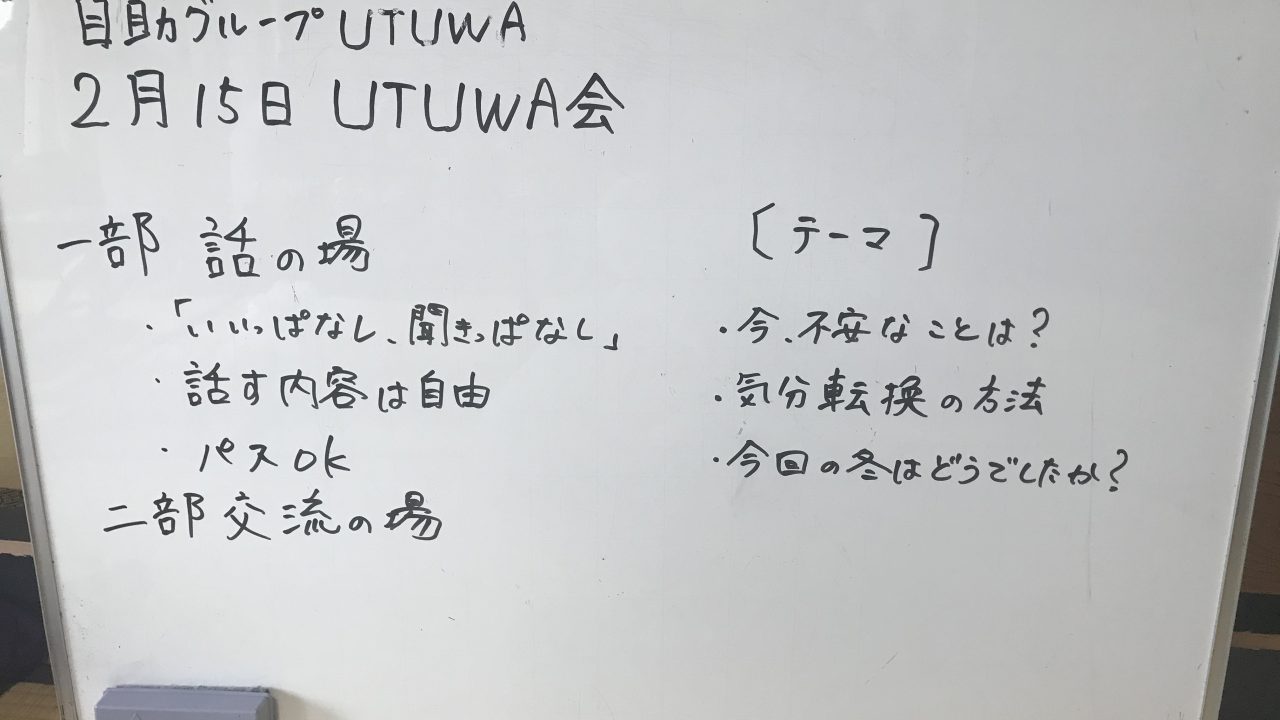 自助グループUTUWA
2月15日 UTUWA会
一部 話の場
・「いいっぱなし、聞きっぱなし」
・話す内容は自由
・パスOK
二部 交流の場
[テーマ]
・今、不安なことは?
・気分転換の方法
・今回の冬はどうでしたか?